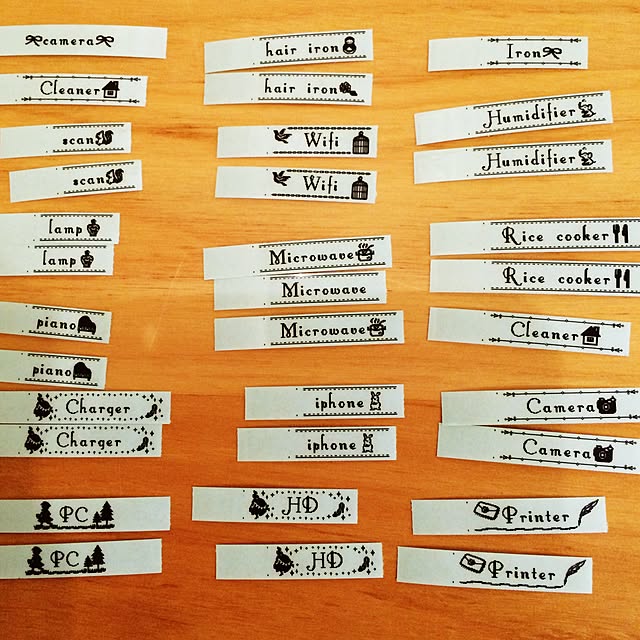 camera
Cleaner
scan
scan
lamp
lamp
piano
piano
Charger
Charger
PC
PC
hair iron
hair iron
Wifi
Wifi
Microwave
Microwave
Microwave
iphone
iphone
HD
HD
Iron
Humidifier
Humidifier
Rice cooker
Rice cooker
Cleaner
Camera
Camera
Printer
Printer